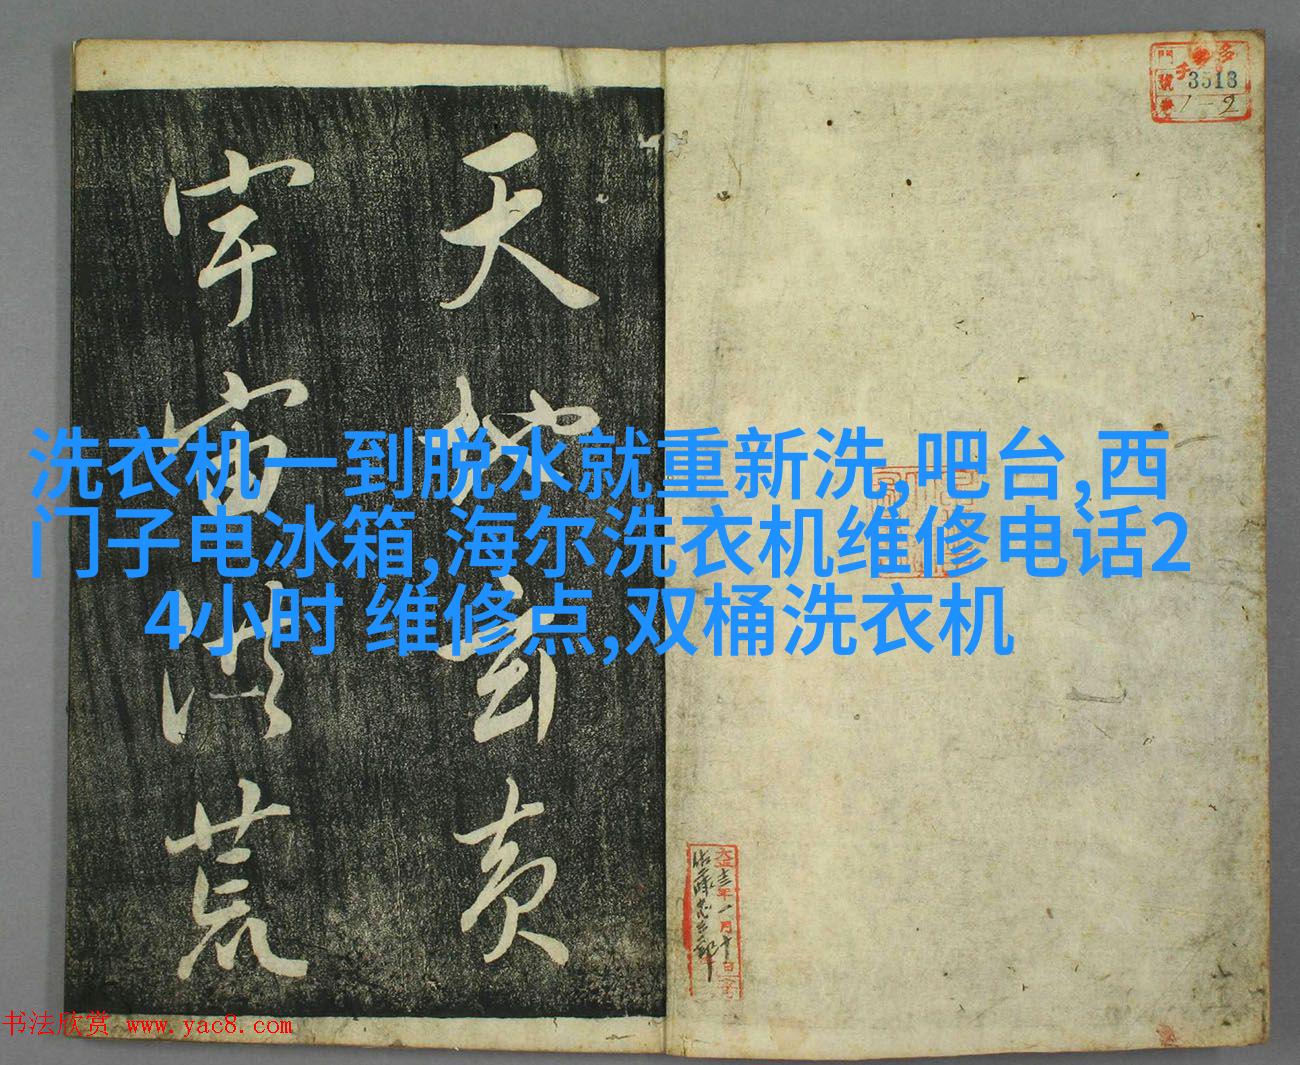 天地玄黄
宇宙洪荒
3513
1-2
洗衣机一到脱水就重新洗,吧台,西
门子电冰箱,海尔洗衣机维修电话2
4小时 维修点,双桶洗衣机
书法欣赏 www.yac8.com